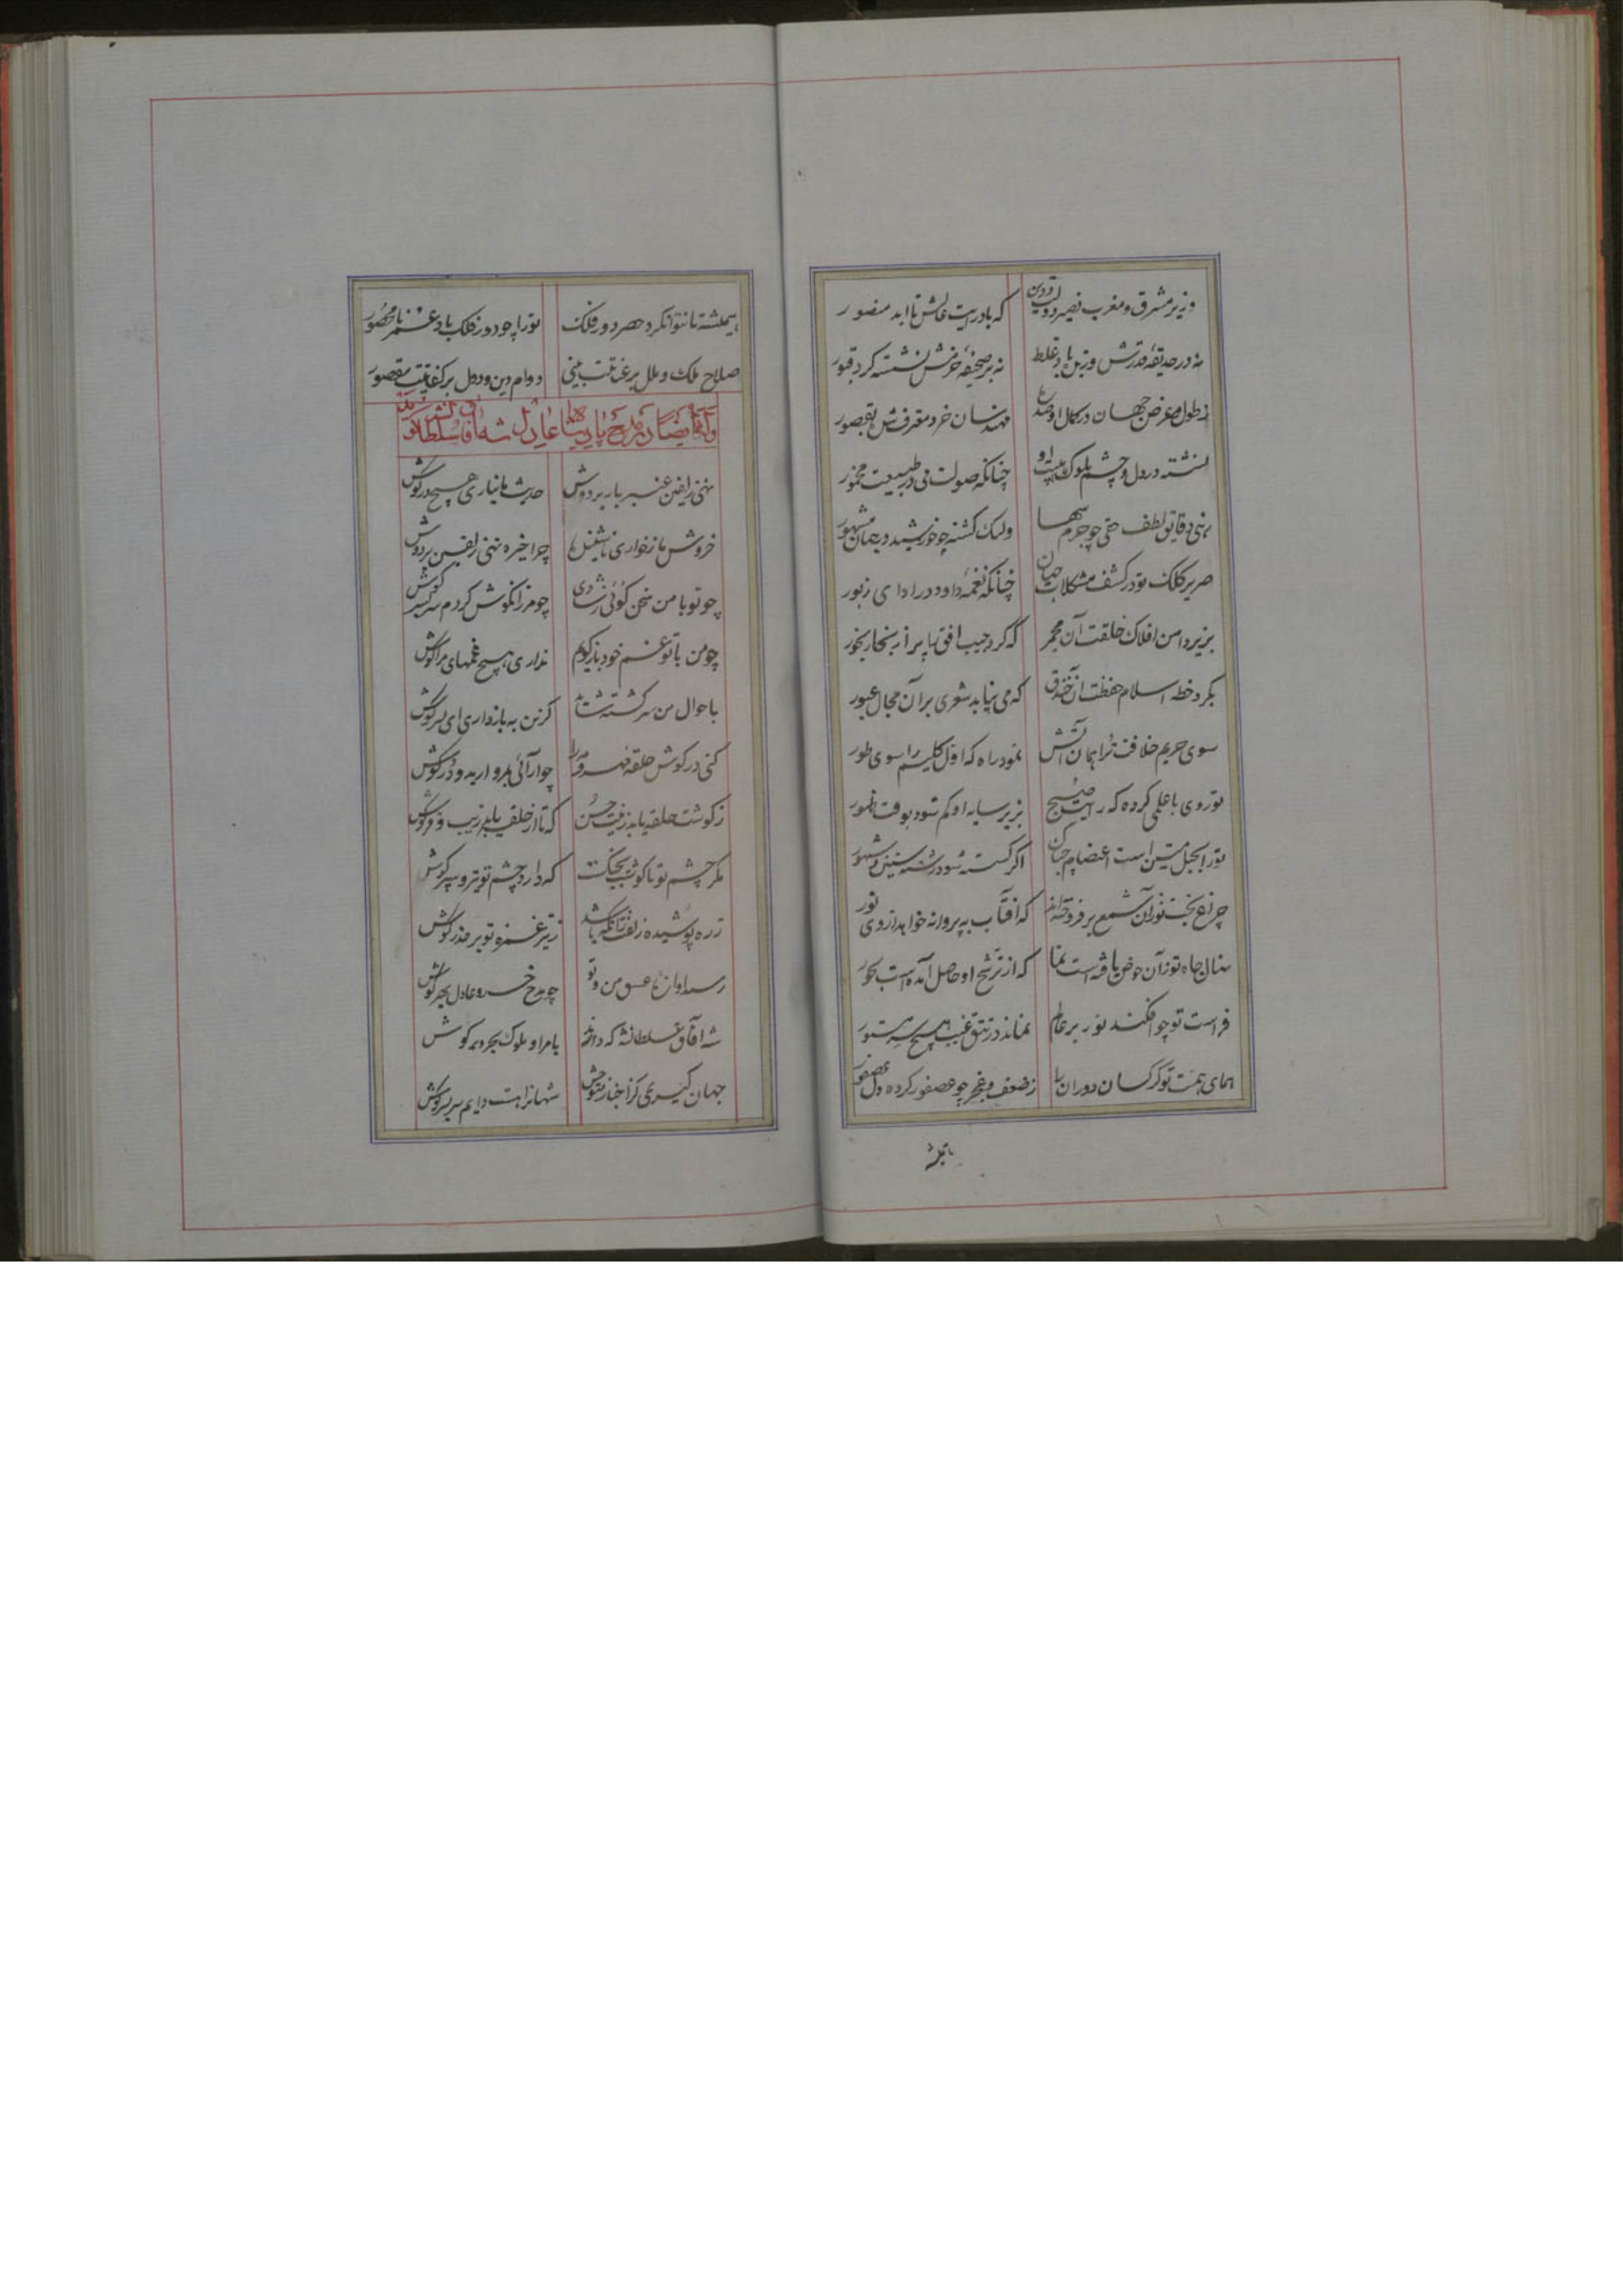 وزیر مشرق و مغرب نصیر دولت و دین که باد رایت عالیش تا ابد منصور
نه در حدیقه قدرتش وزیده باد غلط نه بر صحیفه حزمش نشسته گرد قصور
ز طول و عرض جهان در کمال او صد مهندسان خرد معترف بقصور
نشسته در دل و چشم ملوک هیبت او چنانکه صولت می در طبیعت مخمور
زهی دقایق لطف خفی چو جرم سها ولیک گشته چو خورشید در جهان مشهور
صریر کلک تو در کشف مشکلات جهان چنانکه نغمه داود در ادای زبور
بزیر دامن افلاک خلقت آن مجمر که کرد جیب افق را پر از بخار بخور
بگرد خطه اسلام حفظت آن خندق که می نیابد شعری بر آن مجال عبور
سوی حریم خلافت ترا همان آتش نمود راه که اول کلیم را سوی طور
تو روی با علمی کرده که رایت صبح بزیر سایه او گم شود بوقت ظهور
تو را بحبل متین است اعتصام جهان اگر گسسته شود رشته سنین و شهور
چراغ بخت تو را آن شمع برفروخته‌اند که آفتاب به پروانه خواهد از وی نور
نهال جاه تو زآن حوض یافته است نما که از ترشح او حاصل آمده است بحور
فراست تو چو افکند نور بر عالم نماند در تتق غیب هیچ سر مستور
همای همت تو کرکسان دوران را ز ضعف و عجز چو عصفور کرده دل عصفور
همیشه تا نتوان کرد حصر دور فلک تو را چو دور فلک باد عمر نامحصور
صلاح ملک و ملل بر عنایتت مبنی دوام دین و دول بر کفایتت مقصور
وله ایضا در مدح پادشاه عادل شه آفاق سلطان
نهی زلفین عنبر بار بر دوش حدیث ما نیاری هیچ در گوش
خروش ما ز خواری نشنیدی چرا خیره نهی زلفین بر دوش
چو تو با من سخن گوئی ز شادی چو مرزنگوش گردم سربسر گوش
چو من با تو غم خود بازگویم نداری هیچ غمهای مرا گوش
باحوال من سرگشته شاید گر زین به بازداری ای پسر گوش
کنی در گوش حلقه مهر و مه را چو آرائی بمروارید و در گوش
ز گوشت حلقه یابد زینت حسن که تا از حلقه یابد زیب و فر گوش
مگر چشم تو تا گوشت بجنگست که دارد چشم تو تیر و سپر گوش
زره پوشیده زلفت زانکه باشد ز تیر غمزه تو بر حذر گوش
رسد آوازه عشق من و تو چو مدح خسرو عادل بهر گوش
شه آفاق سلطانشه که دارند بامر او ملوک بحر و بر گوش
جهان گیری کز اخبار فتوحش شهانرا هست دایم سربسر گوش
باتمشه